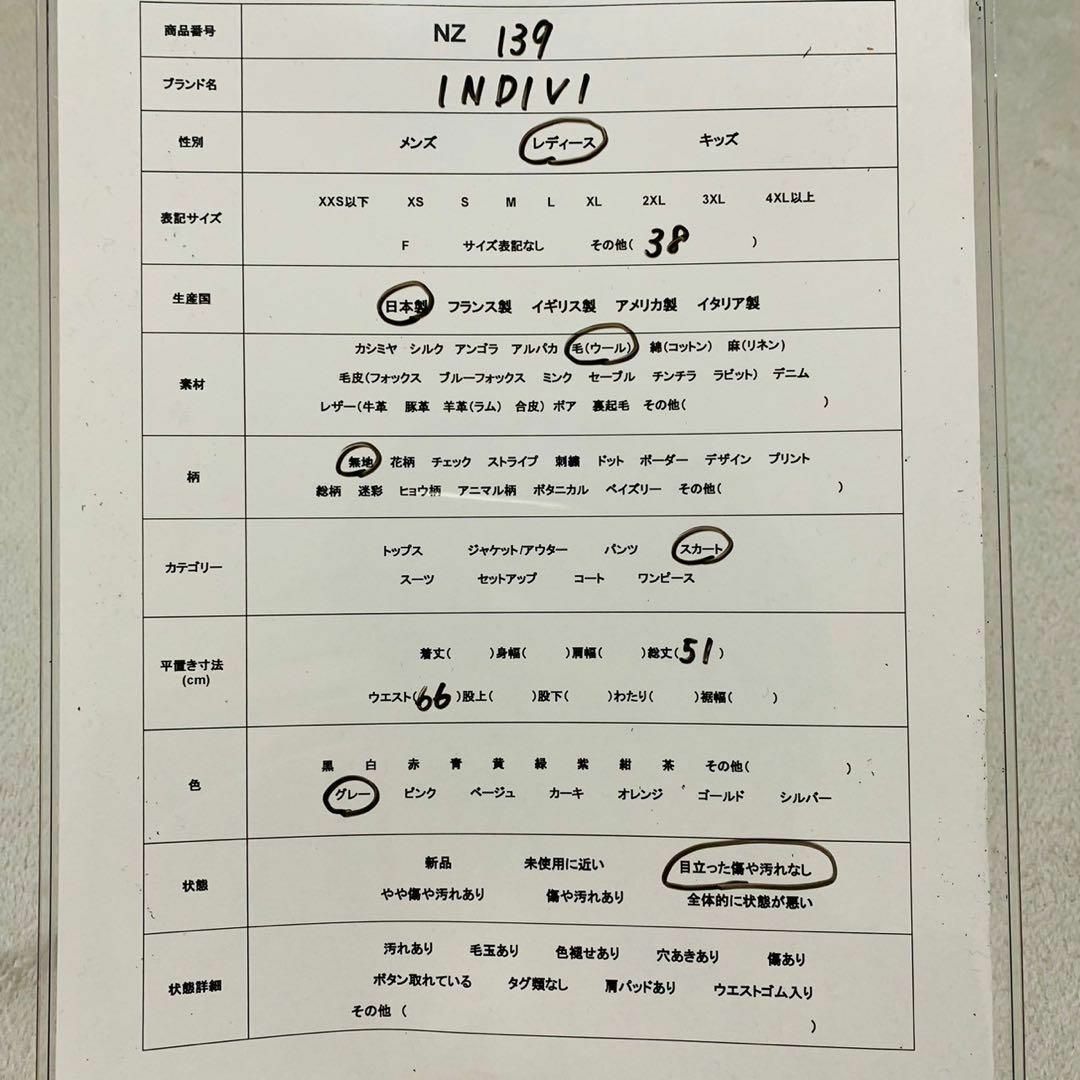 商品番号 NZ 139
ブランド名 INDIVI
性別 メンズ レディース キッズ
XXS以下 XS S M L XL 2XL 3XL 4XL以上
表記サイズ
F サイズ表記なし その他( 38 )
生産国 日本製 フランス製 イギリス製 アメリカ製 イタリア製
カシミヤ シルク アンゴラ アルパカ 毛(ウール) 綿(コットン) 麻(リネン)
素材 毛皮(フォックス ブルーフォックス ミンク セーブル チンチラ ラビット) デニム
レザー(牛革 豚革 羊革(ラム) 合皮) ボア 裏起毛 その他( )
無地 花柄 チェック ストライプ 刺繍 ドット ボーダー デザイン プリント
柄
総柄 迷彩 ヒョウ柄 アニマル柄 ボタニカル ペイズリー その他( )
トップス ジャケット/アウター パンツ スカート
カテゴリー
スーツ セットアップ コート ワンピース
着丈( )身幅( )肩幅( )総丈( 51 )
平置き寸法
(cm)
ウエスト( 66 )股上( )股下( )わたり( )裾幅( )
黒 白 赤 青 黄 緑 紫 紺 茶 その他( )
色
グレー ピンク ベージュ カーキ オレンジ ゴールド シルバー
新品 未使用に近い 目立った傷や汚れなし
状態
やや傷や汚れあり 傷や汚れあり 全体的に状態が悪い
汚れあり 毛玉あり 色褪せあり 穴あきあり 傷あり
状態詳細 ボタン取れている タグ類なし 肩パッドあり ウエストゴム入り
その他 ( )